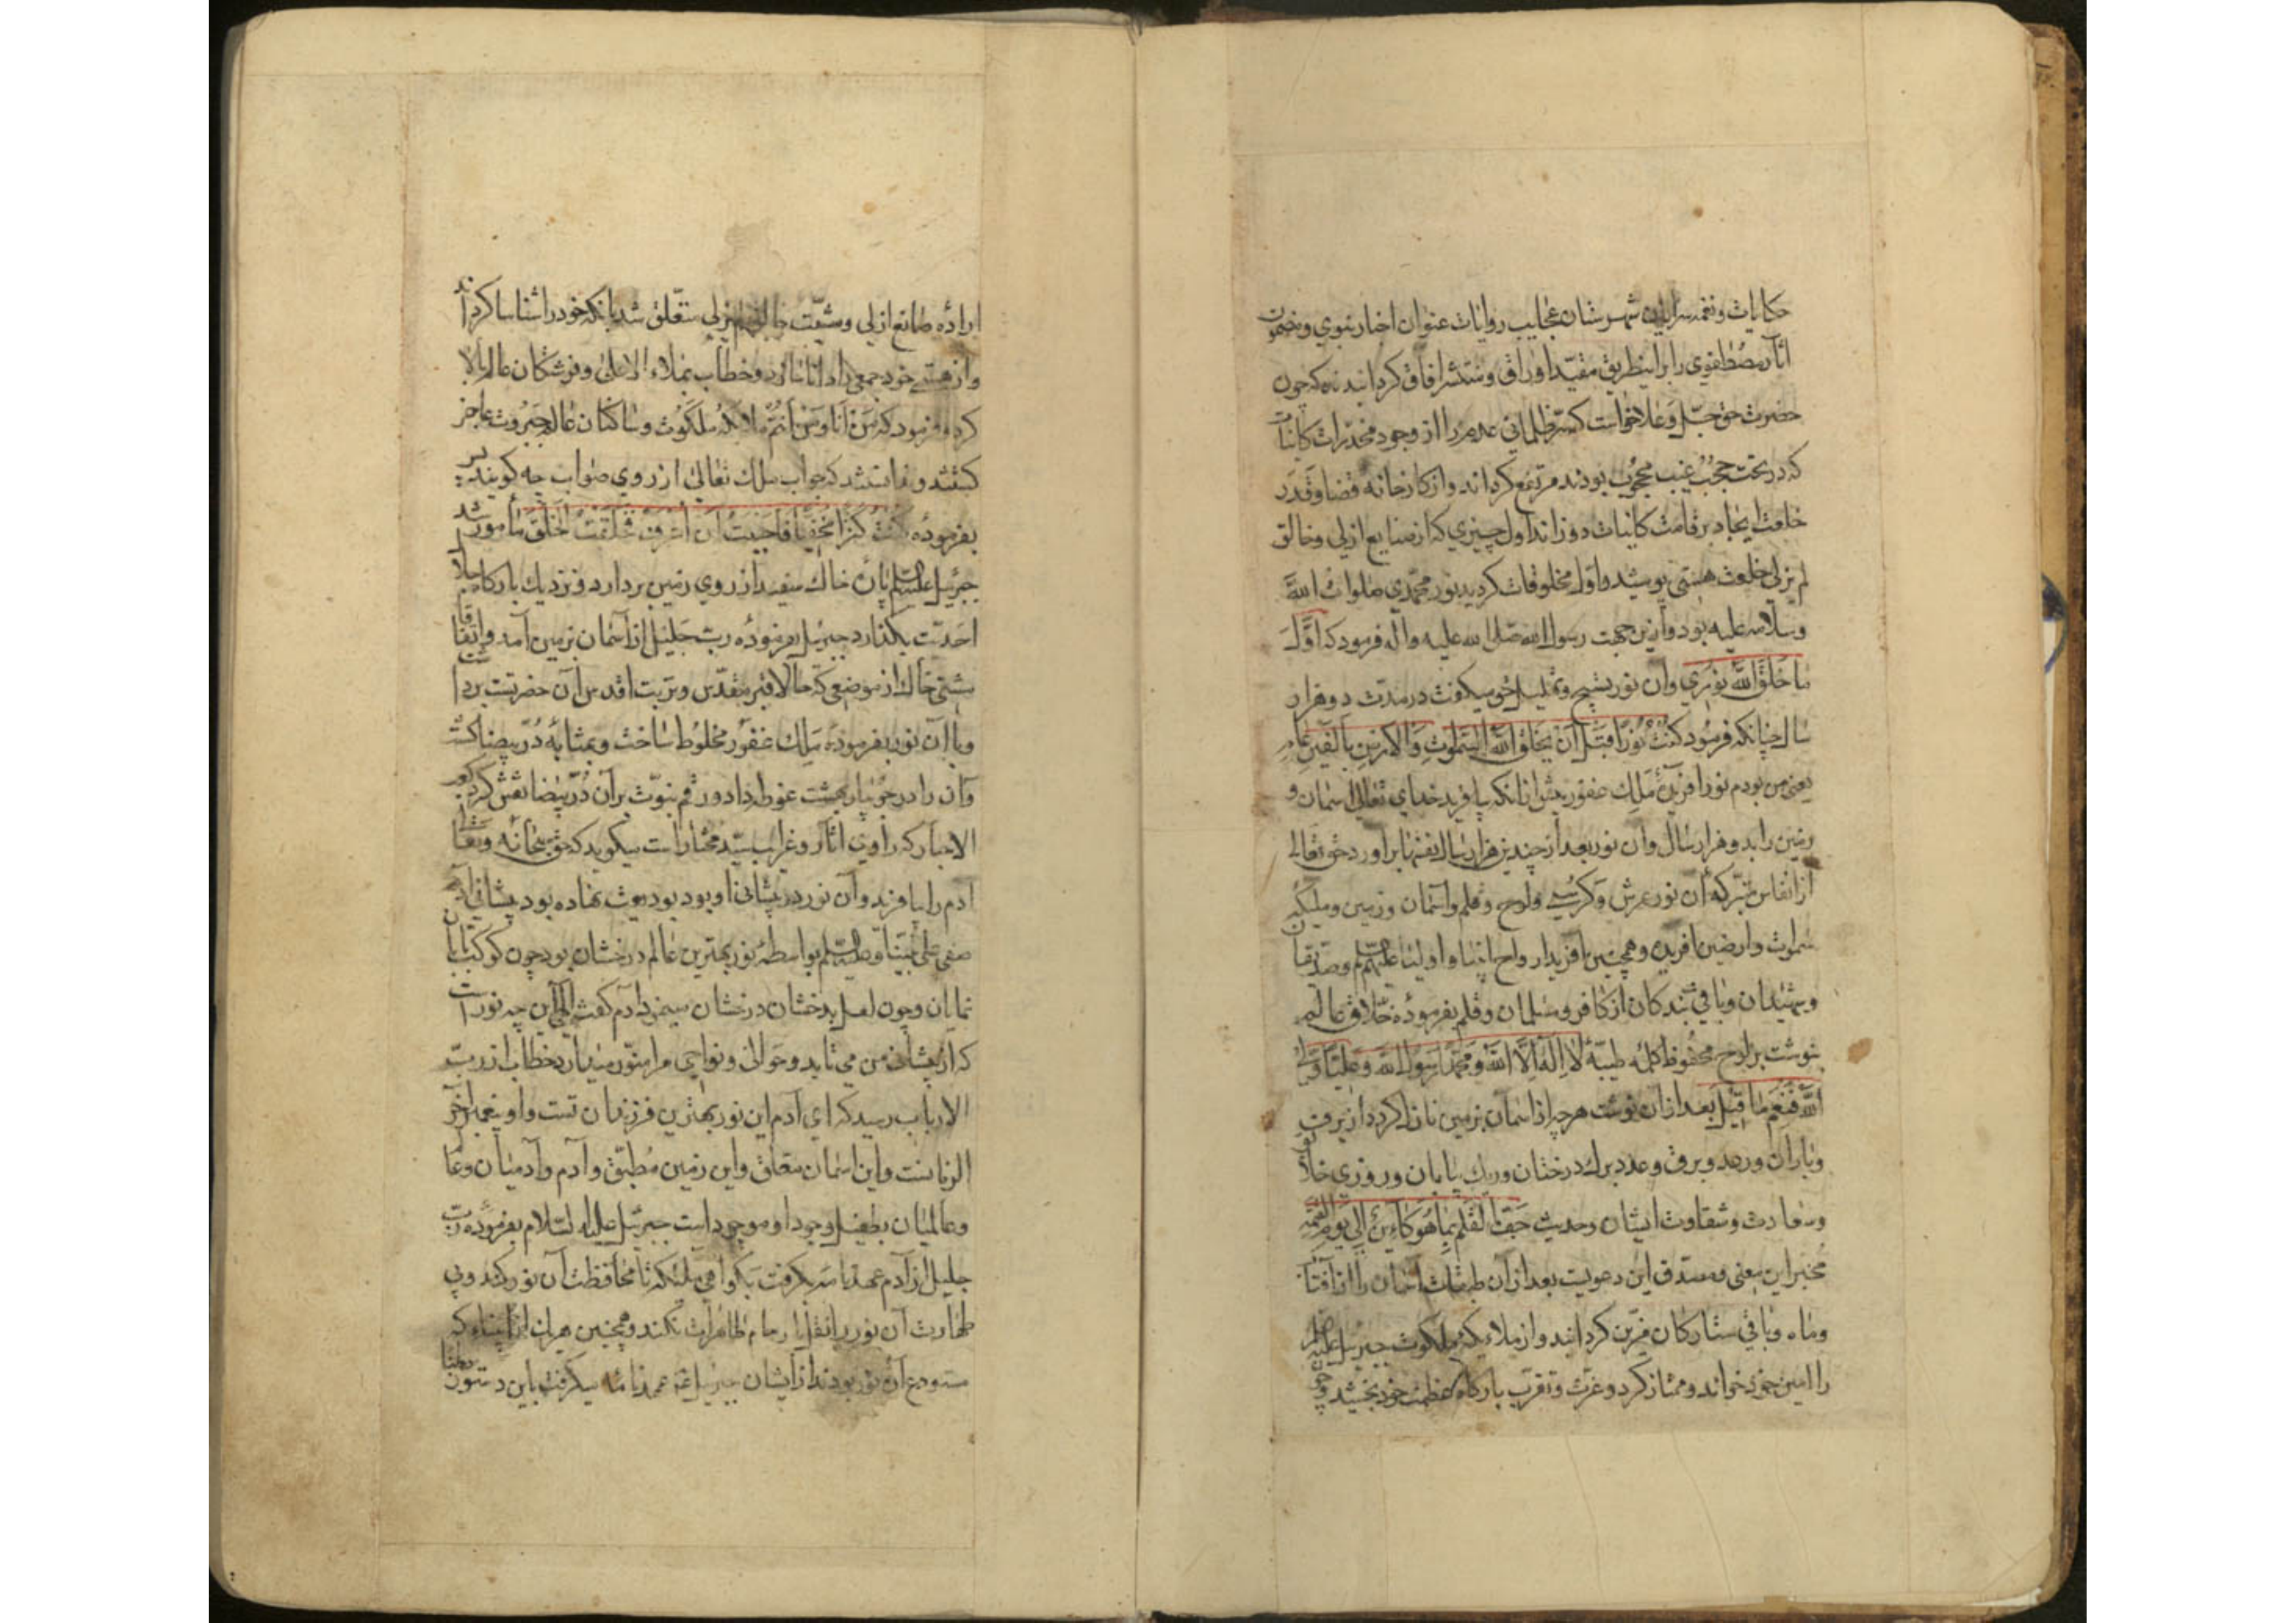 حکایات و نغمه سرایان شهرستان عجایب روایات عنوان اخبار نبوی و مضمون
آثار مصطفوی را براینطریق مقید اوراق و منتشر آفاق کردانیده که چون
حضرت حق جل وعلا خواست که ستر ظلمانی عدم را از وجود مخدرات کاینات
که در تحت حجب غیب محجوب بودند مرتفع کرداند و از کارخانه قضا و قدر
خلعت ایجاد بر قامت کاینات دوزاند اول چیزی که از صنایع ازلی و خالق
لم یزلی خلعت هستی پوشید و اول مخلوقات کردید نور محمدی صلوات الله
وسلامه علیه بود و ازین جهت رسول الله صلی الله علیه واله فرمود که اول
ما خلق الله نوری وآن نور تسبیح و تهلیل حق میکفت در مدت دو هزار
سال چنانکه فرمود کنت نورا قبل ان یخلق الله السموات والارضین بالفین عام
یعنی من بودم نور آفریده ملک غفور پیش از انکه بیافرید خدای تعالی اسمان و
زمین را بدو هزار سال وان نور بعد از چندین هزار سال نفسها براورد حق تعالی
از انفاس متبرکه آن نور عرش و کرسی و لوح و قلم و آسمان و زمین و ملیکه
سموات وارضین آفریده و همچنین بافرید ارواح انبیا و اولیا علیهم السلم و صدیقان
و شهیدان و باقی بندکان از کافر و مسلمان و قلم بفرموده خلاق عالم
نوشت بر لوح محفوظ کلمه طیبه لا اله الا الله ومحمدا رسول الله وعلیا ولی
الله فنعم ما قیل بعد ازان نوشت هر چه از اسمان بزمین نازل کردد از برف
و باران و رعد و برق و عدد برك درختان وریك بیابان و روزی خلایق
وسعادت و شقاوت ایشان و حدیث جف القلم بما هو کاین الی یوم القیمه
مخبر این معنی و مصدق این دعویست بعد از آن طبقات اسمان را از آفتاب
وماه و باقی ستارکان مزین کردانید و از ملایکه ملکوت جبرییل علیه السلم
را امین خود خواند و ممتاز کرد و عزت و تقرب بارکاه عظمت خود بخشید و چون
اراده صانع ازلی و مشیت خالق لم یزلی متعلق شد بانکه خود را شناسا کرداند
و از هستی خود جمعی را دانا سازد و خطاب بملاء الاعلی و فرشتکان عالم بالا
کرد و فرمود که من انا و من انتم ملائکه ملکوت و ساکنان عالم جبروت عاجز
کشتند و ندانستند که جواب ملك تعالی از روی صواب چه کویند پس
بفرموده کنت کنزا مخفیا فاحببت ان اعرف فخلقت الخلق مامور شد
جبرئیل علیه السلم بآن خاك سفید از روی زمین بردارد و نزدیك بارکاه جلال
احدیت بکذارد جبرئیل بفرموده رب جلیل از آسمان بزمین آمد و اتفاقا
مشتی خاك از موضعی که حالا قبر مقدس و تربت اقدس آن حضرتست برداشت
وباآن نور بفرموده ملك غفور مخلوط ساخت و بمثابه در بیضا کشت
وآن را در جویبار بهشت غوطه داد و رقم نبوت بر آن در بیضا نقش کرد کعب
الاحبار که راوی آثار و غرایب سید مختار است میکوید که حق سبحانه وتعالی
آدم را بیافرید و آن نور در پیشانی او بود بودیعت نهاده بود پیشانی آدم
صفی علی نبینا و علیه السلم بواسطه نور بهترین عالم درخشان بود چون کوکب تابان
نمایان و چون لعل بدخشان درخشان می‌نمود آدم کفت الهی این چه نور است
که از پیشانی من می تابد و حوالی و نواحی مرا منور میدارد خطاب از رب
الارباب رسید که ای آدم این نور بهترین فرزندان تست و او پیغمبر آخر
الزمانست و این اسمان معلق و این زمین مطبق وآدم وآدمیان و عالم
وعالمیان بطفیل وجود او موجود است جبرییل علیه السلام بفرموده رب
جلیل از آدم عهدنامه بکرفت بکواهی ملئکه تا محافظت آن نور کند و بی
طهارت آن نور را نقل بارحام طاهرات نکند و همچنین هر یك از انبیاء که
مستودع آن نور بودند از ایشان جبرییل عهد نامه میکرفت باین دستور